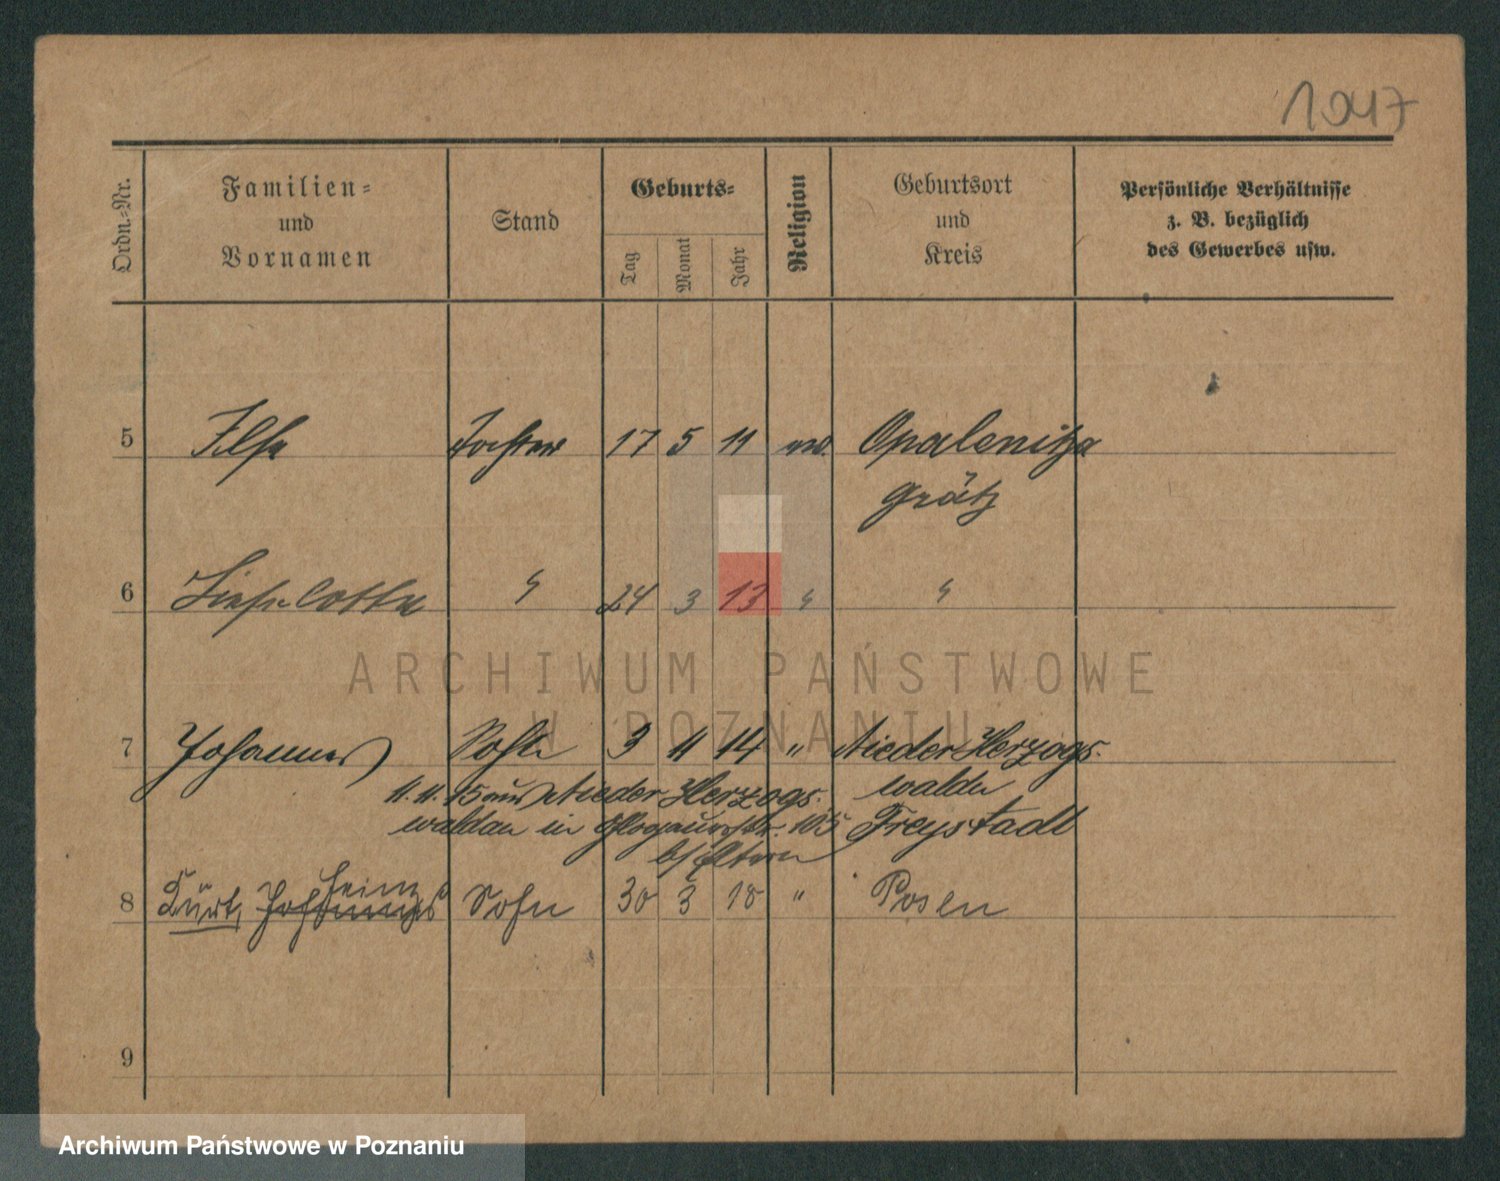 1047
Ordn.=Nr.
Familien=
und
Vornamen
Stand
Geburts=
Tag
Monat
Jahr
Religion
Geburtsort
und
Kreis
Persönliche Verhältnisse
z. B. bezüglich
des Gewerbes usw.
5 Ilse Tochter 17 5 11 ev. Opalenitza
Grätz
6 Lieselotte " 24 3 13 " "
ARCHIWUM PAŃSTWOWE
W POZNANIU
7 Johannes Sohn 3 11 14 " Nieder Herzogs.
walde
11.11.15 aus Nieder Herzogs.
Freystadt
waldau in Glogauerstr. 105
b/ Eltern
Heinz
8 Kurt, Johannes Sohn 30 3 18 " Posen
9
Archiwum Państwowe w Poznaniu